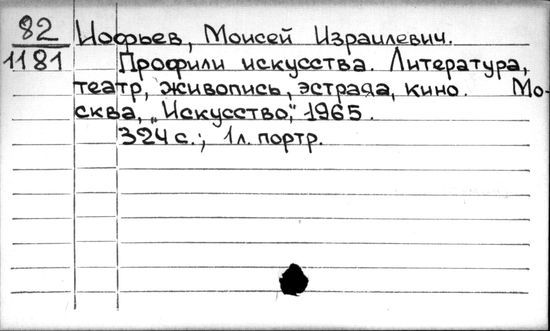 82 Иофьев, Моисей Израилевич.
1181 Профили искусства. Литература,
театр, живопись, эстрада, кино. Мо-
сква, „Искусство", 1965.
324 с.; 1 л. портр.